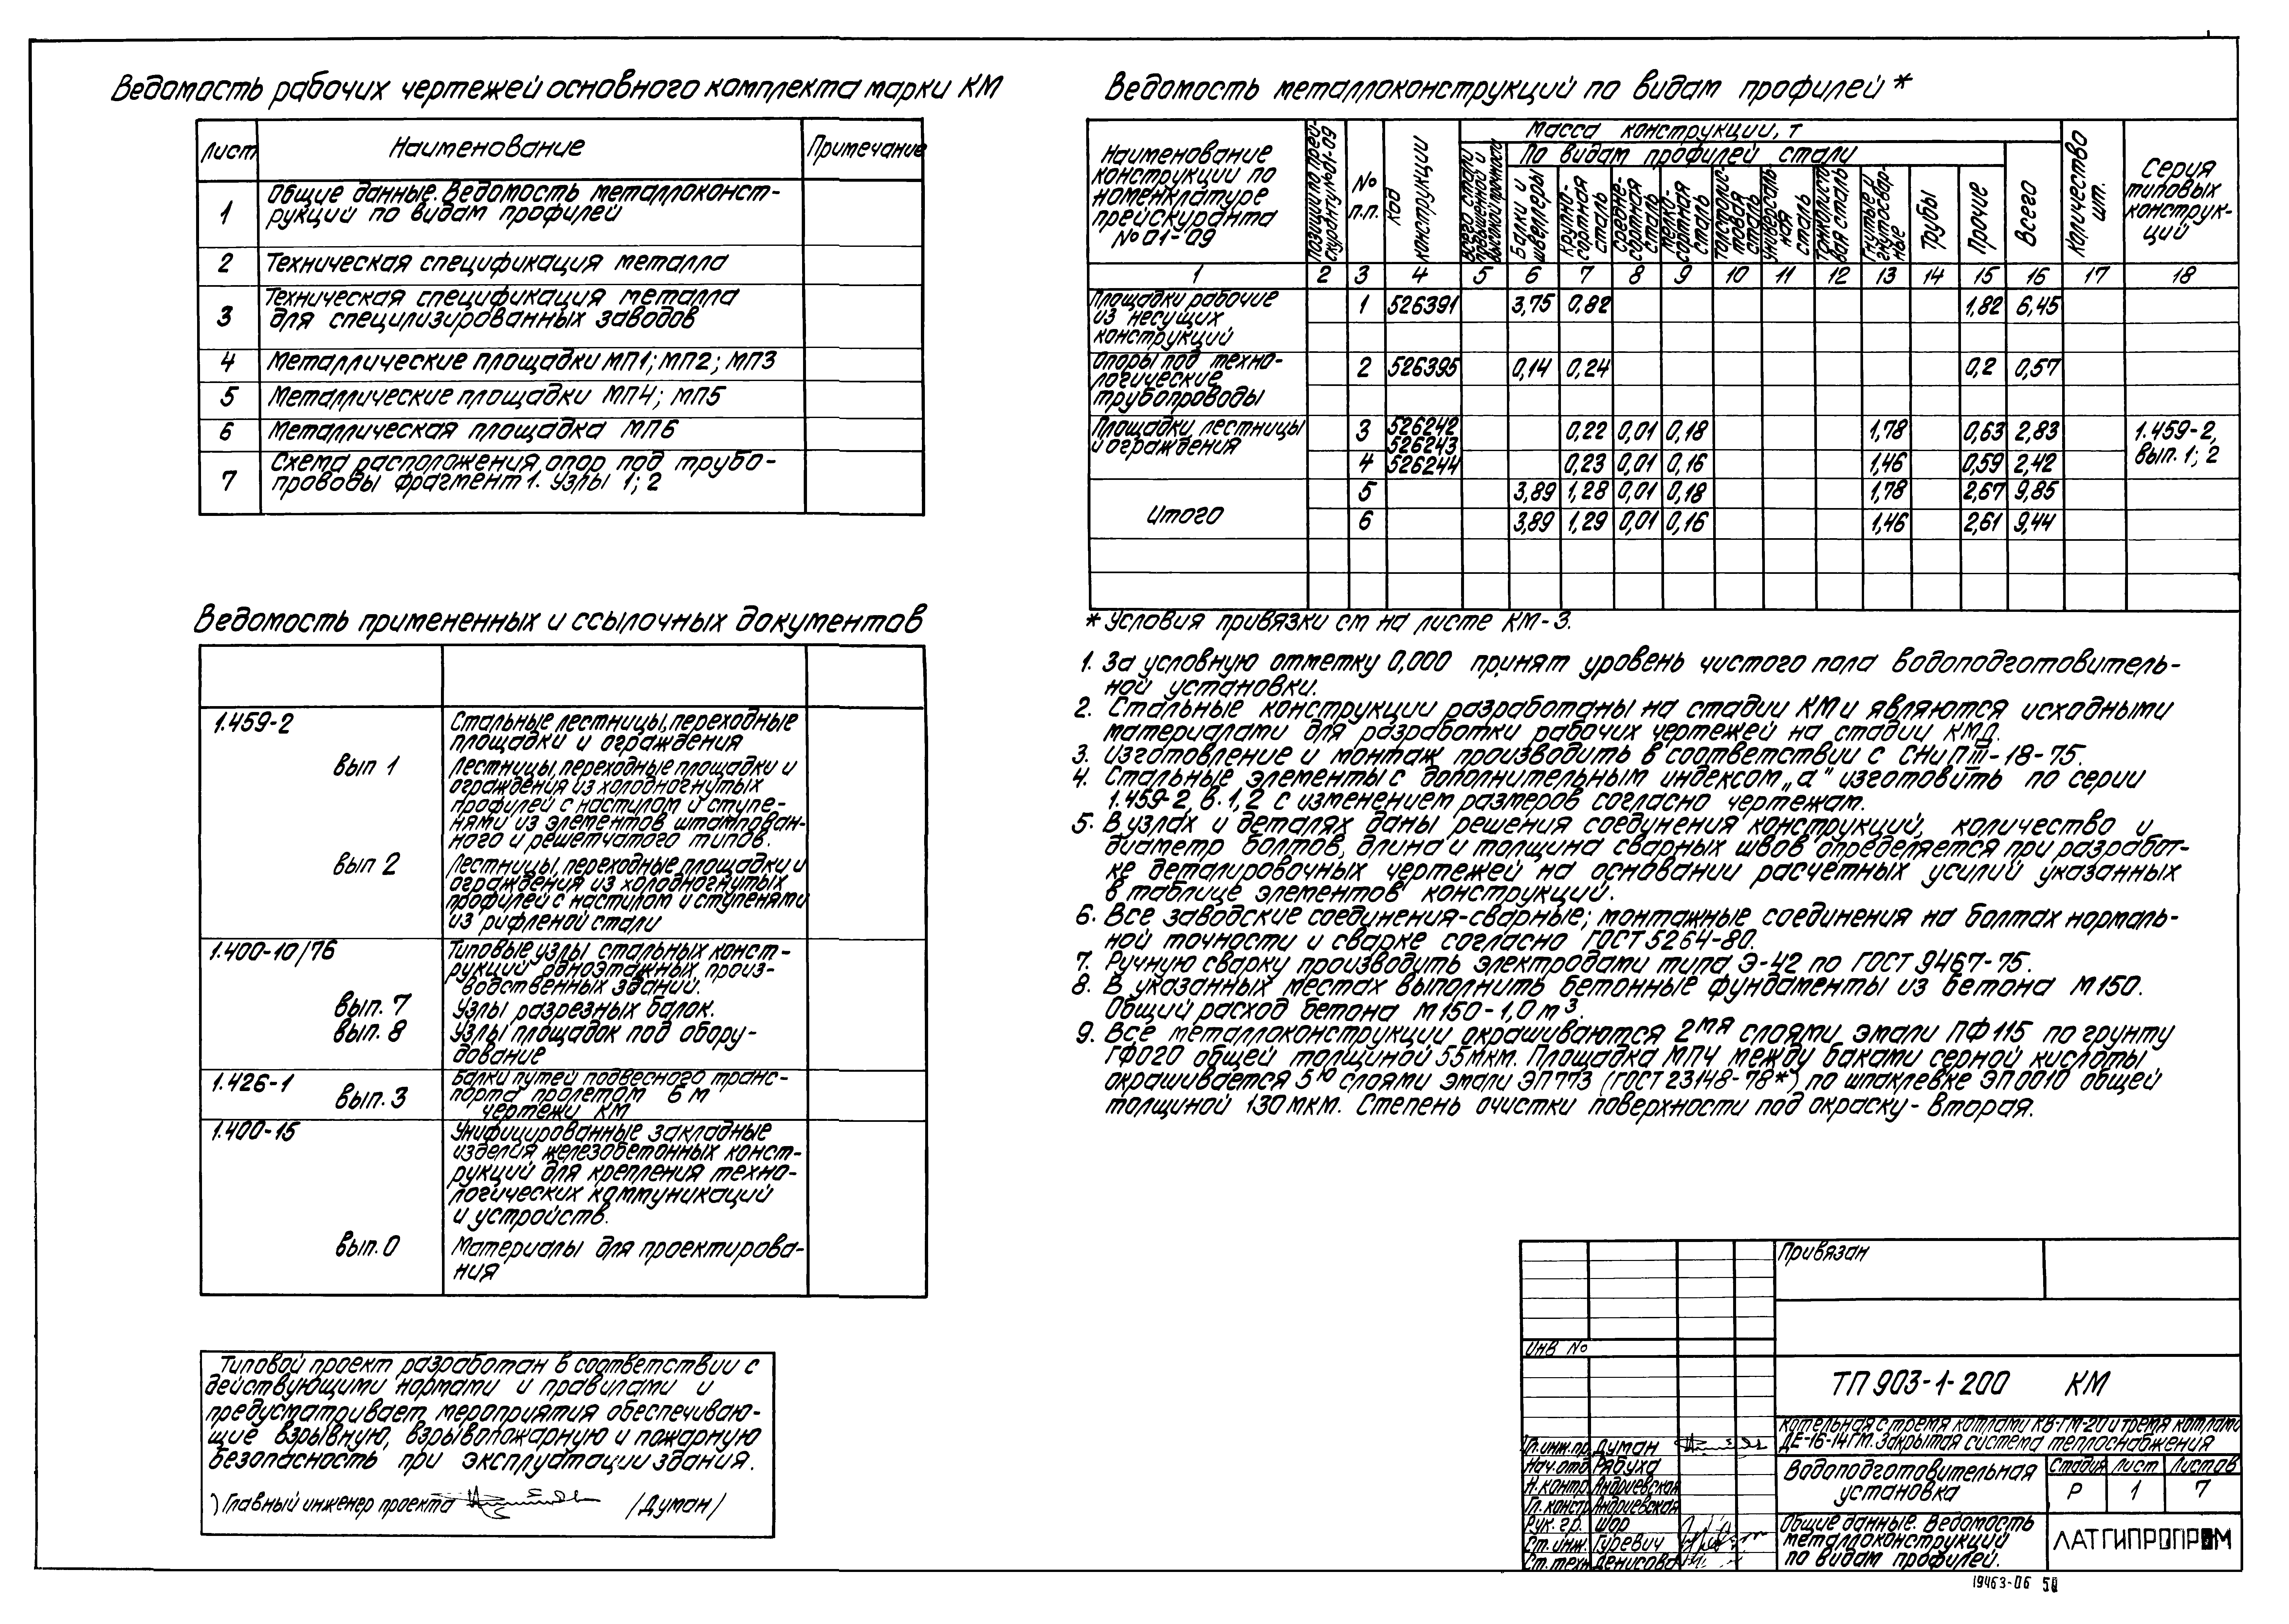 Ведомость рабочих чертежей основного комплекта марки КМ
Лист Наименование Примечание
1 Общие данные. Ведомость металлоконст-
рукций по видам профилей
2 Техническая спецификация металла
3 Техническая спецификация металла
для специлизированных заводов
4 Металлические площадки МП1; МП2; МП3
5 Металлические площадки МП4; МП5
6 Металлическая площадка МП6
7 Схема расположения опор под трубо-
проводы фрагмент 1. Узлы 1; 2
Ведомость примененных и ссылочных документов
1.459-2 Стальные лестницы, переходные
площадки и ограждения
вып 1 Лестницы, переходные площадки и
ограждения из холодногнутых
профилей с настилом и ступе-
нями из элементов штампован-
ного и решетчатого типов.
вып 2 Лестницы, переходные площадки и
ограждения из холодногнутых
профилей с настилом и ступенями
из рифленой стали
1.400-10/76 Типовые узлы стальных конст-
рукций одноэтажных произ-
водственных зданий.
вып. 7 Узлы разрезных балок.
вып. 8 Узлы площадок под обору-
дование
1.426-1 Балки путей подвесного транс-
вып. 3 порта пролетом 6 м
чертежи КМ
1.400-15 Унифицированные закладные
изделия железобетонных конст-
рукций для крепления техно-
логических коммуникаций
и устройств.
вып. 0 Материалы для проектирова-
ния
Типовой проект разработан в соответствии с
действующими нормами и правилами и
предусматривает мероприятия обеспечиваю-
щие взрывную, взрывопожарную и пожарную
безопасность при эксплуатации здания.
Главный инженер проекта /Думан/
Ведомость металлоконструкций по видам профилей *
Наименование
конструкции по
номенклатуре
прейскуранта
№ 01-09
Позиции по прей-
скуранту № 01-09
№
п.п.
Код
конструкции
Масса конструкции, т
Всего стали
повышенной и
высокой прочности
По видам профилей стали
Балки и
швеллеры
Крупно-
сортная
сталь
Средне-
сортная
сталь
Мелко-
сортная
сталь
Толстолис-
товая
сталь
Универсаль-
ная
сталь
Тонколисто-
вая сталь
Гнутые и
гнутосвар-
ные
Трубы
Прочие
Всего
Количество
шт.
Серия
типовых
конструк-
ций
1 2 3 4 5 6 7 8 9 10 11 12 13 14 15 16 17 18
Площадки рабочие 1 526391 3,75 0,82 1,82 6,45
из несущих
конструкций
Опоры под техно- 2 526395 0,14 0,24 0,2 0,57
логические
трубопроводы
Площадки, лестницы 3 526242 0,22 0,01 0,18 1,78 0,63 2,83 1.459-2,
и ограждения 526243
4 526244 0,23 0,01 0,16 1,46 0,59 2,42 вып. 1; 2
5 3,89 1,28 0,01 0,18 1,78 2,67 9,85
Итого
6 3,89 1,29 0,01 0,16 1,46 2,61 9,44
* Условия привязки см на листе КМ-3.
1. За условную отметку 0,000 принят уровень чистого пола водоподготовитель-
ной установки.
2. Стальные конструкции разработаны на стадии КМ и являются исходными
материалами для разработки рабочих чертежей на стадии КМД.
3. Изготовление и монтаж производить в соответствии с СНиП III-18-75.
4. Стальные элементы с дополнительным индексом „а" изготовить по серии
1.459-2, в. 1,2 с изменением размеров согласно чертежам.
5. В узлах и деталях даны решения соединения конструкций, количество и
диаметр болтов, длина и толщина сварных швов определяется при разработ-
ке деталировочных чертежей на основании расчетных усилий указанных
в таблице элементов конструкций.
6. Все заводские соединения-сварные; монтажные соединения на болтах нормаль-
ной точности и сварке согласно ГОСТ 5264-80.
7. Ручную сварку производить электродами типа Э-42 по ГОСТ 9467-75.
8. В указанных местах выполнить бетонные фундаменты из бетона М 150.
Общий расход бетона М 150-1,0 м³.
9. Все металлоконструкции окрашиваются 2мя слоями эмали ПФ 115 по грунту
ГФ020 общей толщиной 55мкм. Площадка МП4 между баками серной кислоты
окрашивается 5ю слоями эмали ЭП773 (ГОСТ 23148-78*) по шпаклевке ЭП0010 общей
толщиной 130мкм. Степень очистки поверхности под окраску- вторая.
Привязан
Инв №
ТП 903-1-200 КМ
Котельная с тремя котлами КВ-ГМ-20 и тремя котлами
ДЕ-16-14ГМ. Закрытая система теплоснабжения
Гл. инж. пр. Думан
Нач. отд Рябуха
Н. контр. Андриевская
Гл. констр. Андриевская
Рук. гр. Шор
Ст. инж. Гуревич
Ст. техн Денисова
Водоподготовительная
установка
Стадия Лист Листов
Р 1 7
Общие данные. Ведомость
металлоконструкций
по видам профилей.
ЛАТГИПРОПРОМ
19463-06 50